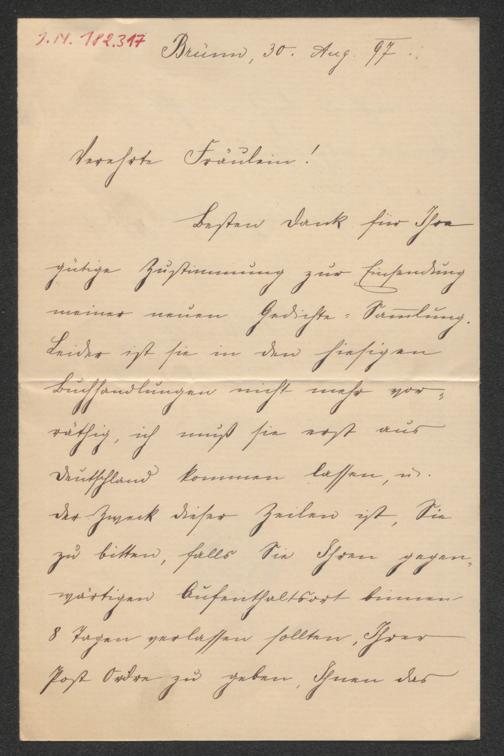 J.N. 182.317
Brünn, 30. Aug. 97.
Verehrte Fräulein!
Besten Dank für Ihre
gütige Zustimmung zur Einsendung
meiner neuen Gedichte-Sammlung.
Leider ist sie in den hiesigen
Buchhandlungen nicht mehr vor-
räthig, ich muß sie erst aus
Deutschland kommen lassen, u.
der Zweck dieser Zeilen ist, Sie
zu bitten, falls Sie Ihren gegen-
wärtigen Aufenthaltsort binnen
8 Tagen verlassen sollten, Ihrer
Post Ordre zu geben, Ihnen das